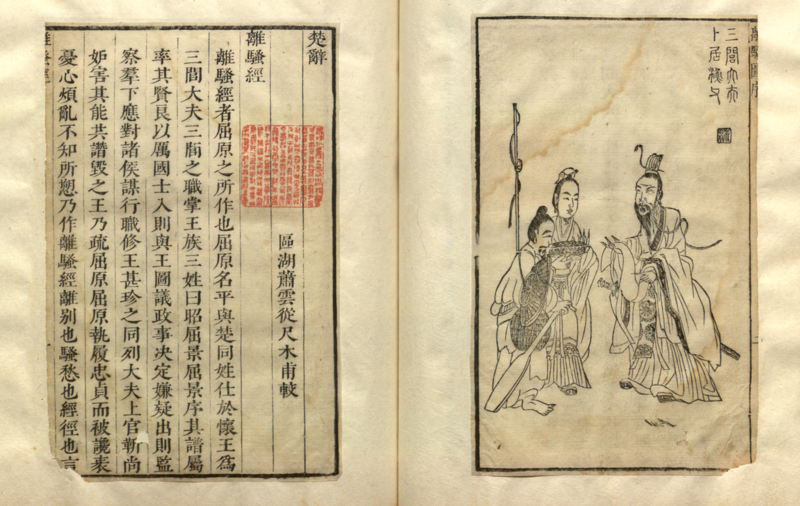 離騷圖序
三閭大夫
卜居漁父
楚辭
區湖蕭雲從尺木甫較
離騷經
離騷經者屈原之所作也屈原名平與楚同姓仕於懷王爲
三閭大夫三閭之職掌王族三姓曰昭屈景屈景序其譜屬
率其賢良以厲國士入則與王圖議政事决定嫌疑出則監
察羣下應對諸侯謀行職修王甚珍之同列大夫上官靳尚
妒害其能共譖毀之王乃疏屈原屈原執履忠貞而被讒衺
憂心煩亂不知所愬乃作離騷經離别也騷愁也經徑也言
離騷經